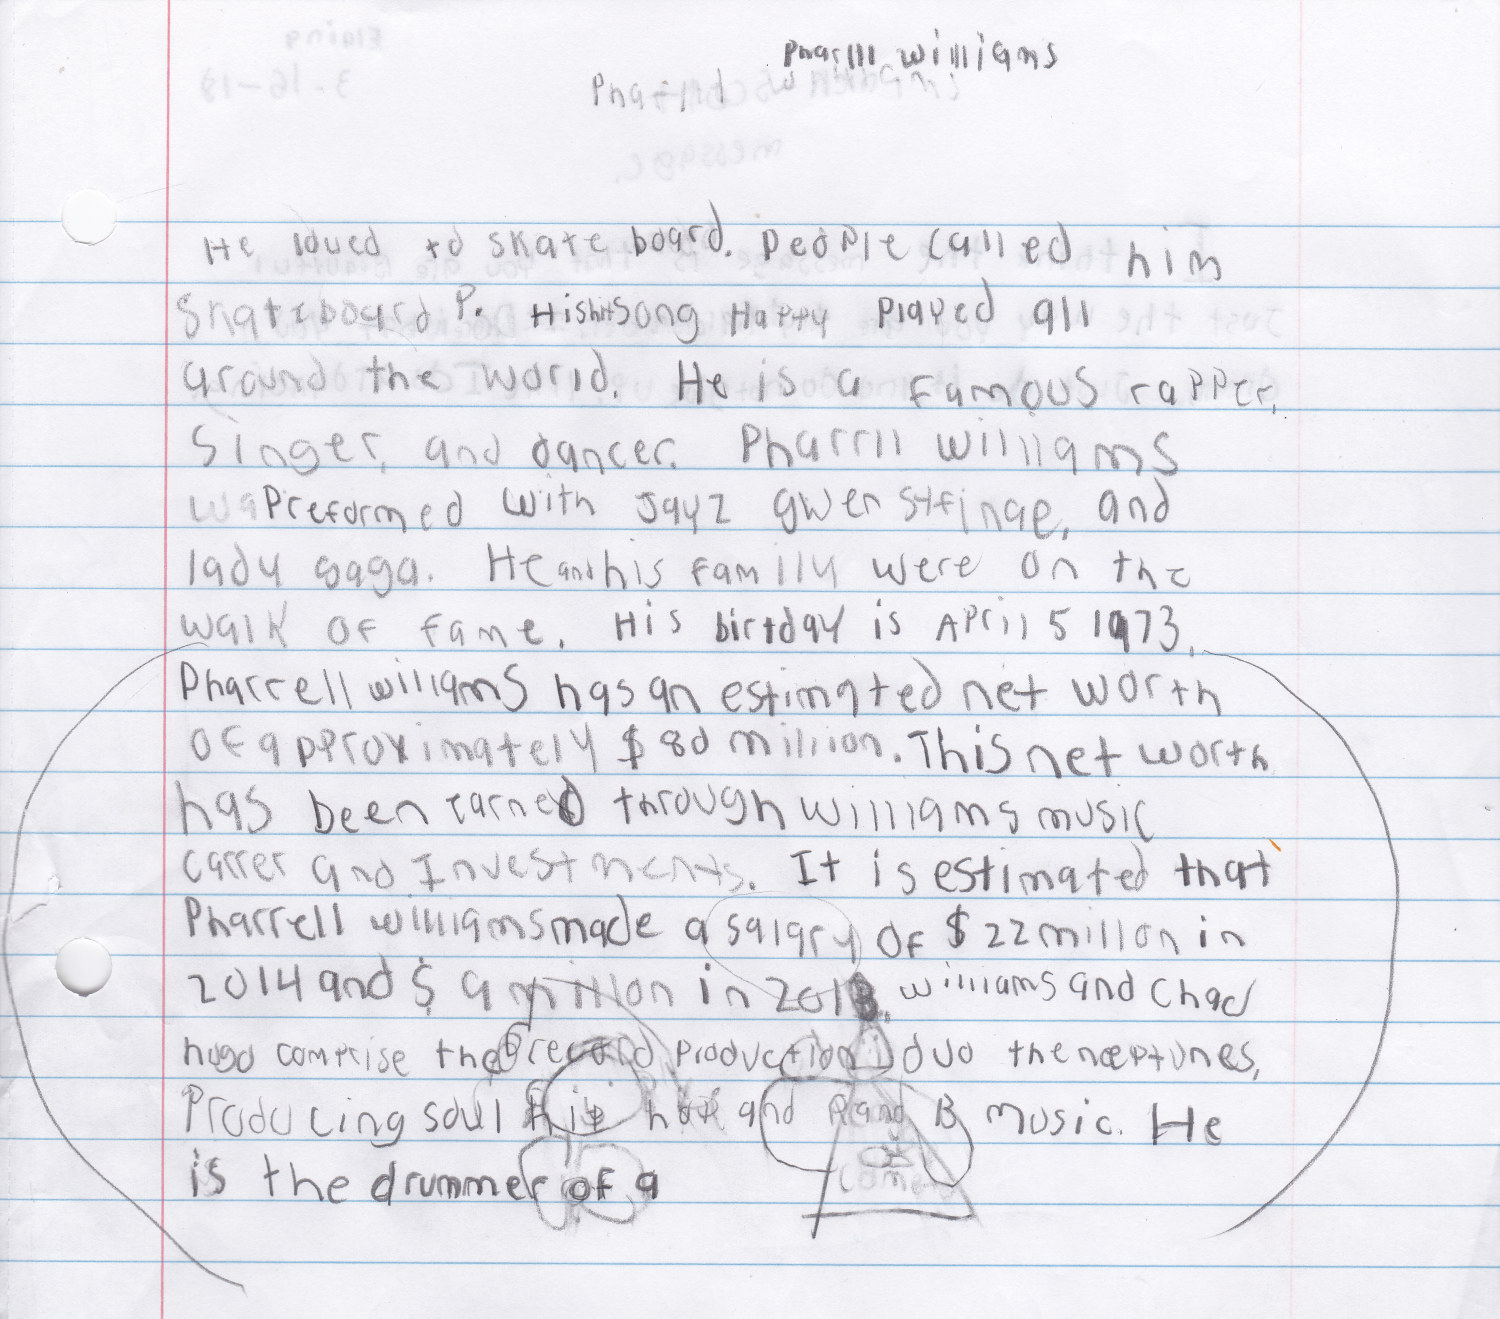 Pharlll williams
He loved to skate board. People called him
Skateboard P. His hit song Happy Played all
around the world. He is a Famous rapper,
Singer, and dancer. Pharrll williams
Preformed with Jayz gwen stfinae, and
lady gaga. He and his family were on the
walk of fame. His birtday is April 5 1973.
Pharrell williams has an estimated net worth
of approximately $80 million. This net worth
has been earned through williams music
carrer and Investments. It is estimated that
Pharrell williams made a salary of $22 millon in
2014 and $9 millon in 2013. williams and Chad
hugo comprise the record production duo the neptunes,
Producing soul hip hop and R and B music. He
is the drummer of a